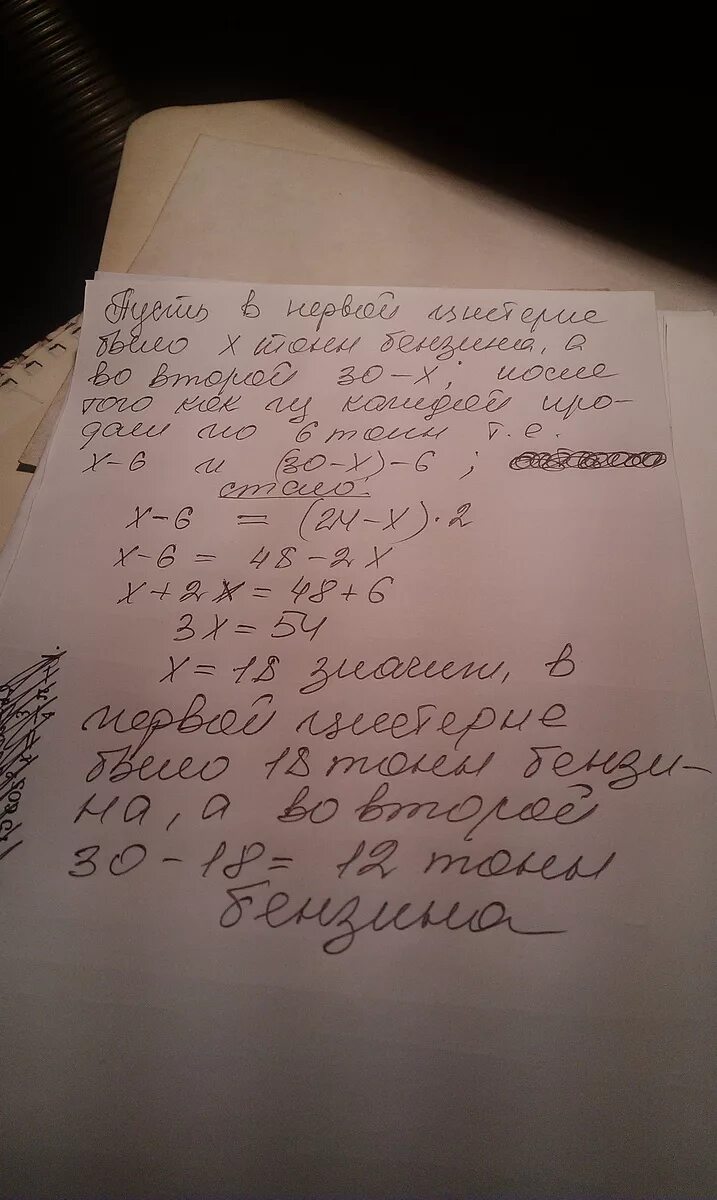 Пусть в первой цистерне
было х тонн бензина, а
во второй 30-х; после
того как из каждой про-
дали по 6 тонн т.е.
х-6 и (30-х)-6 ;
стало:
х-6 = (24-х)·2
х-6 = 48-2х
х+2х=48+6
3х=54
х=18 значит, в
первой цистерне
было 18 тонн бензи-
на, а во второй
30-18= 12 тонн
бензина